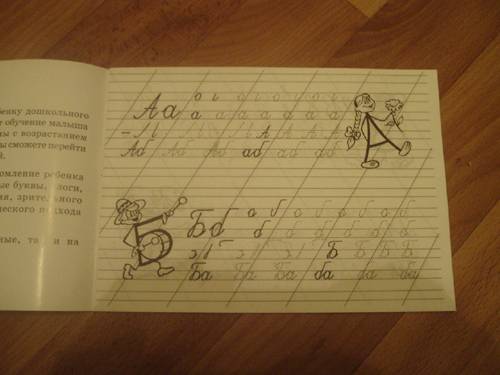 бенку дошкольного
обучение малыша
ны с возрастанием
вы сможете перейти
й.
омление ребенка
ые буквы, слоги,
ия, зрительного
ческого подхода
ные, так и на
Аа
а а а а а а а
А А А А
Аб Аб Аб аб аб аб
А
Бб
б б б б б б б
Б Б Б Б
Ба Ба Ба ба ба ба
Б